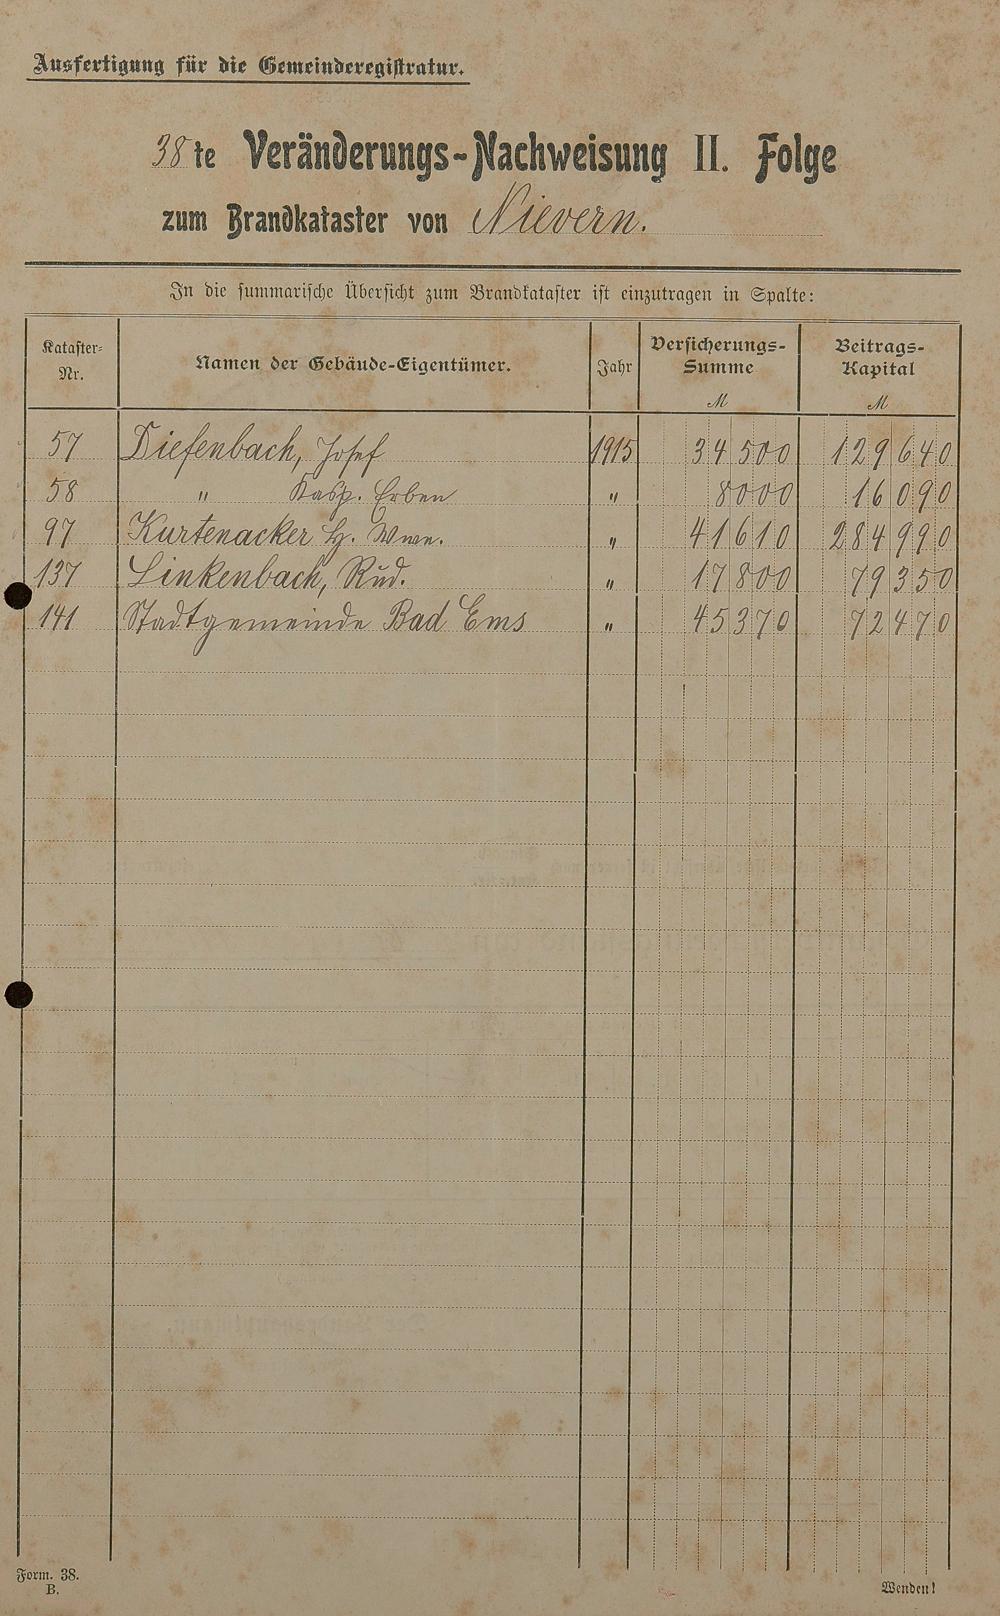 Ausfertigung für die Gemeinderegistratur.
38te Veränderungs-Nachweisung II. Folge
zum Brandkataster von Nievern.
In die summarische Übersicht zum Brandkataster ist einzutragen in Spalte:
Kataster-Nr. Namen der Gebäude-Eigentümer. Jahr Versicherungs-Summe M Beitrags-Kapital M
57 Diefenbach, Josef 1915 34500 129640
58 " Kasp. Erben " 8000 16090
97 Kurtenacker H. Wwe. " 41610 284990
137 Linkenbach, Rud. " 17800 79350
141 Stadtgemeinde Bad Ems " 45370 72470
Form. 38.
B.
Wenden!